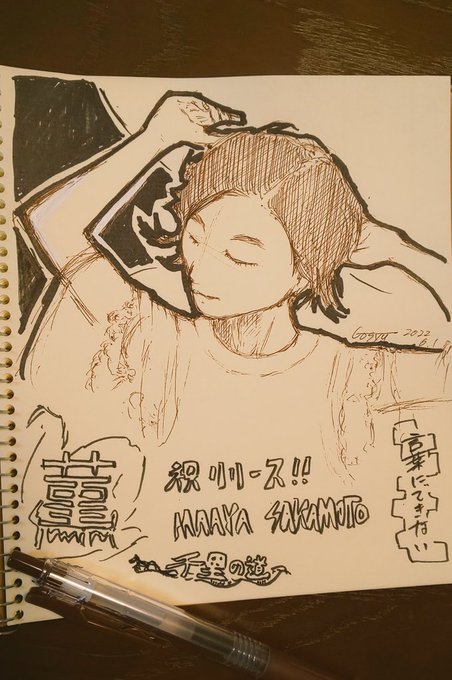 2022
6.1
菫
祝リリース!!
MAAYA SAKAMOTO
千里の道
言葉にできない